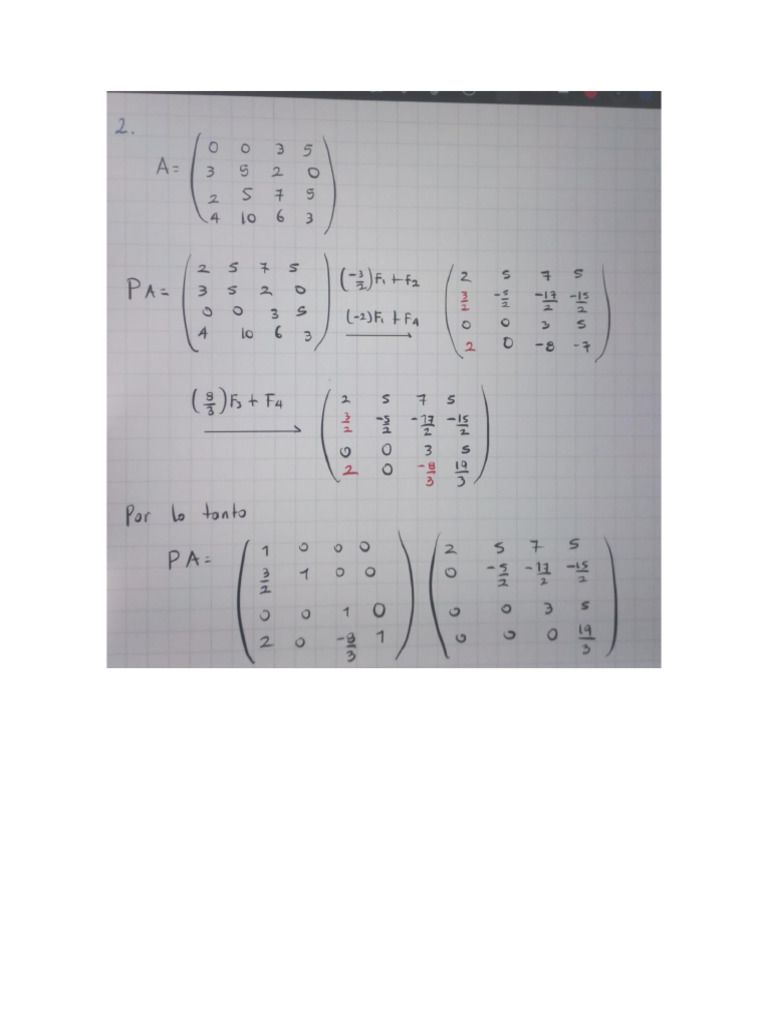 2.
A= ( 0 0 3 5
3 5 2 0
2 5 7 5
4 10 6 3 )
PA= ( 2 5 7 5
3 5 2 0
0 0 3 5
4 10 6 3 )
(-3/2)F1 + f2
(-2)F1 + F4
( 2 5 7 5
3/2 -5/2 -17/2 -15/2
0 0 3 5
2 0 -8 -7 )
(8/3)F3 + F4
( 2 5 7 5
3/2 -5/2 -17/2 -15/2
0 0 3 5
2 0 -8/3 19/3 )
Por lo tanto
PA= ( 1 0 0 0
3/2 1 0 0
0 0 1 0
2 0 -8/3 1 )
( 2 5 7 5
0 -5/2 -17/2 -15/2
0 0 3 5
0 0 0 19/3 )